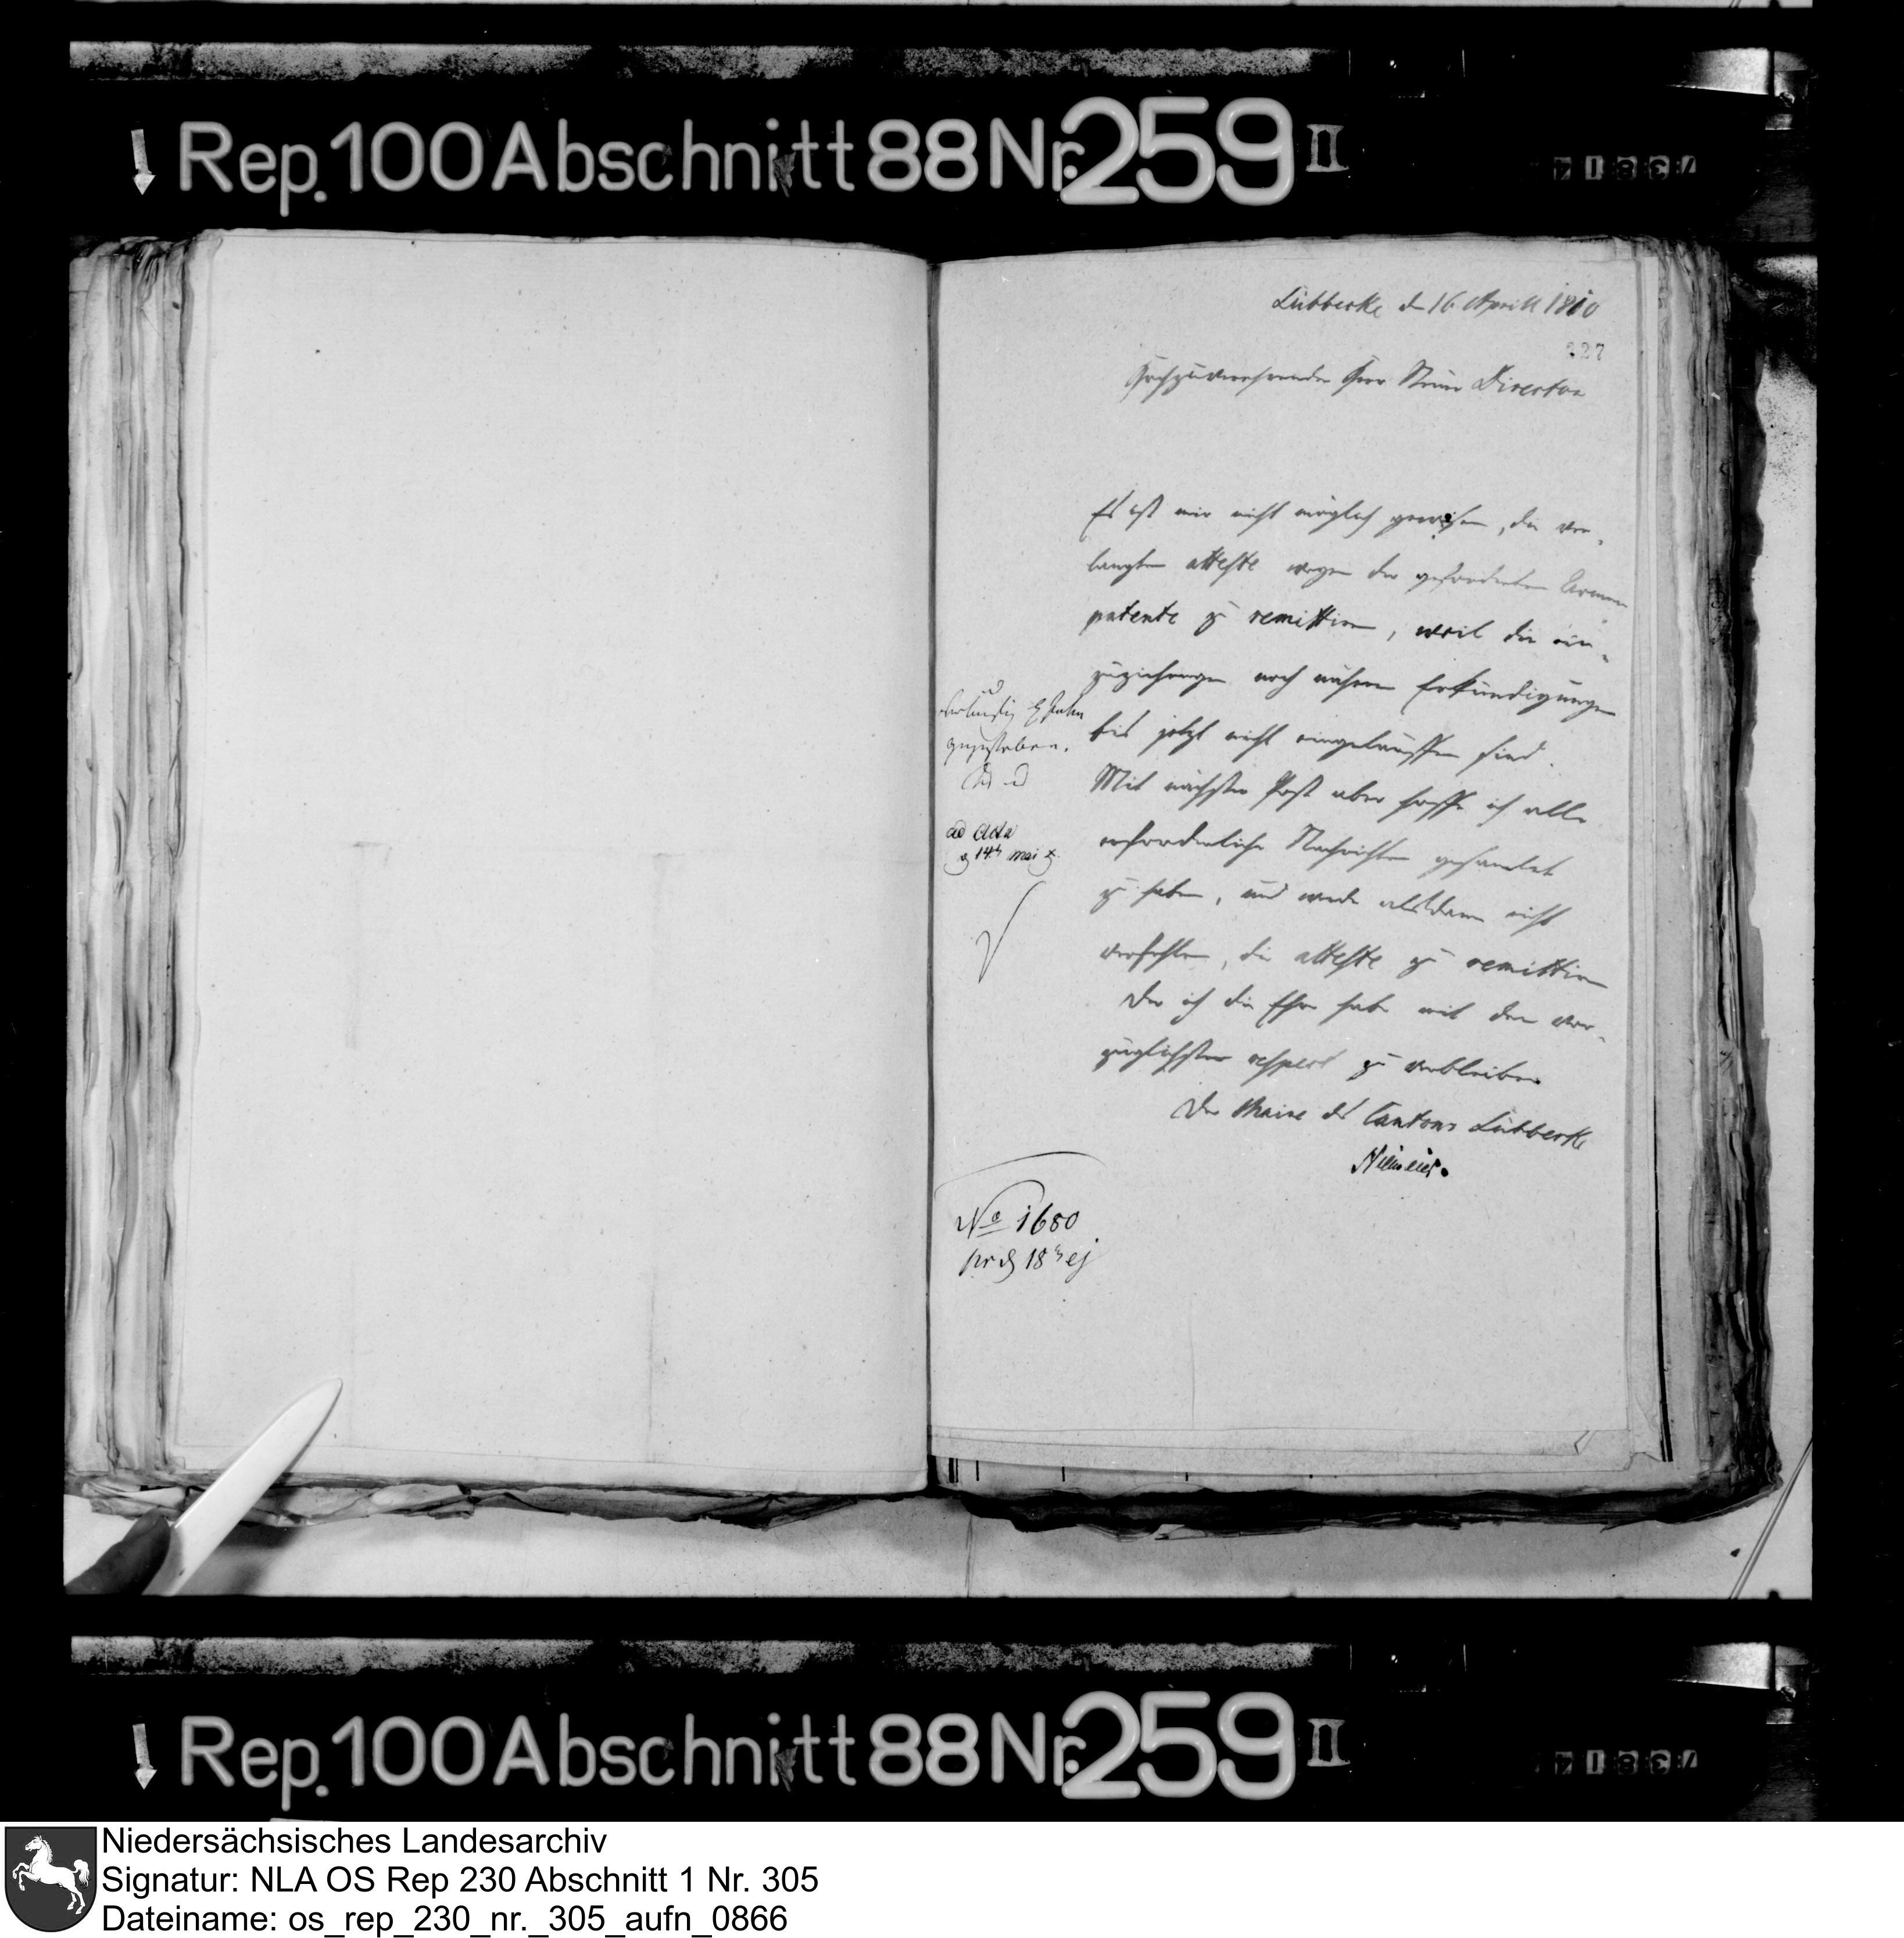 Rep. 100 Abschnitt 88 Nr. 259 II
73814
Lübbecke d 16 Aprill 1810
327
Hochzuverehrender Herr Steuer Director
Es ist mir nicht möglich gewesen, die ver-
langten atteste wegen der geforderten Armen
patente zu remittiren, weil die ein-
zuziehenden noch nähern Erkundigungen
bis jetzt nicht eingelauffen sind.
Mit nächster Post aber hoffe ich alle
erforderliche Nachrichten gesamlet
zu haben, und werde alsdann nicht
verfehlen, die atteste zu remittiren
Der ich die Ehre habe mit dem vor-
züglichsten respect zu verbleiben
Der Maire des Cantons Lübbecke
Niemeier.
ad Acta
d 14t mai
No 1680
pr d 18t ej
Rep. 100 Abschnitt 88 Nr. 259 II
73814
Niedersächsisches Landesarchiv
Signatur: NLA OS Rep 230 Abschnitt 1 Nr. 305
Dateiname: os_rep_230_nr._305_aufn_0866